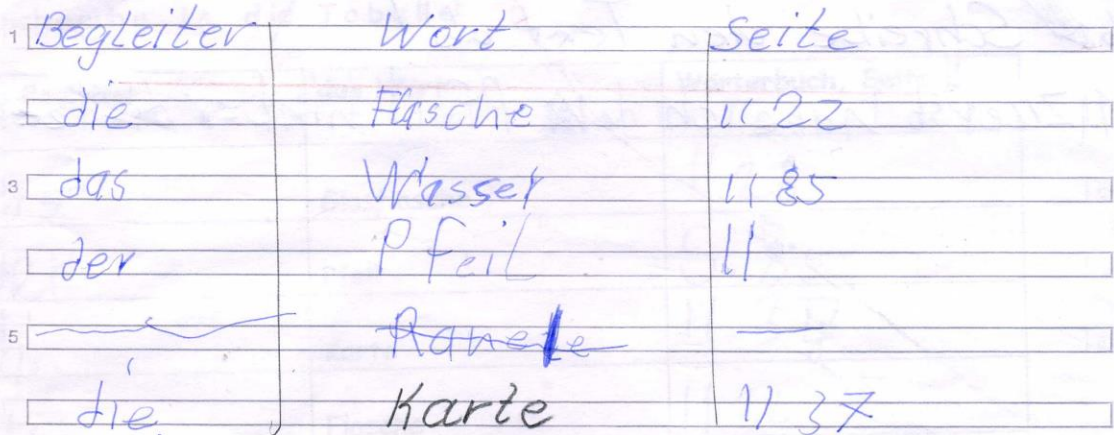 1 Begleiter Wort Seite
die Flasche 1122
3 das Wasser 1185
der Pfeil 11
5
die Karte 1137